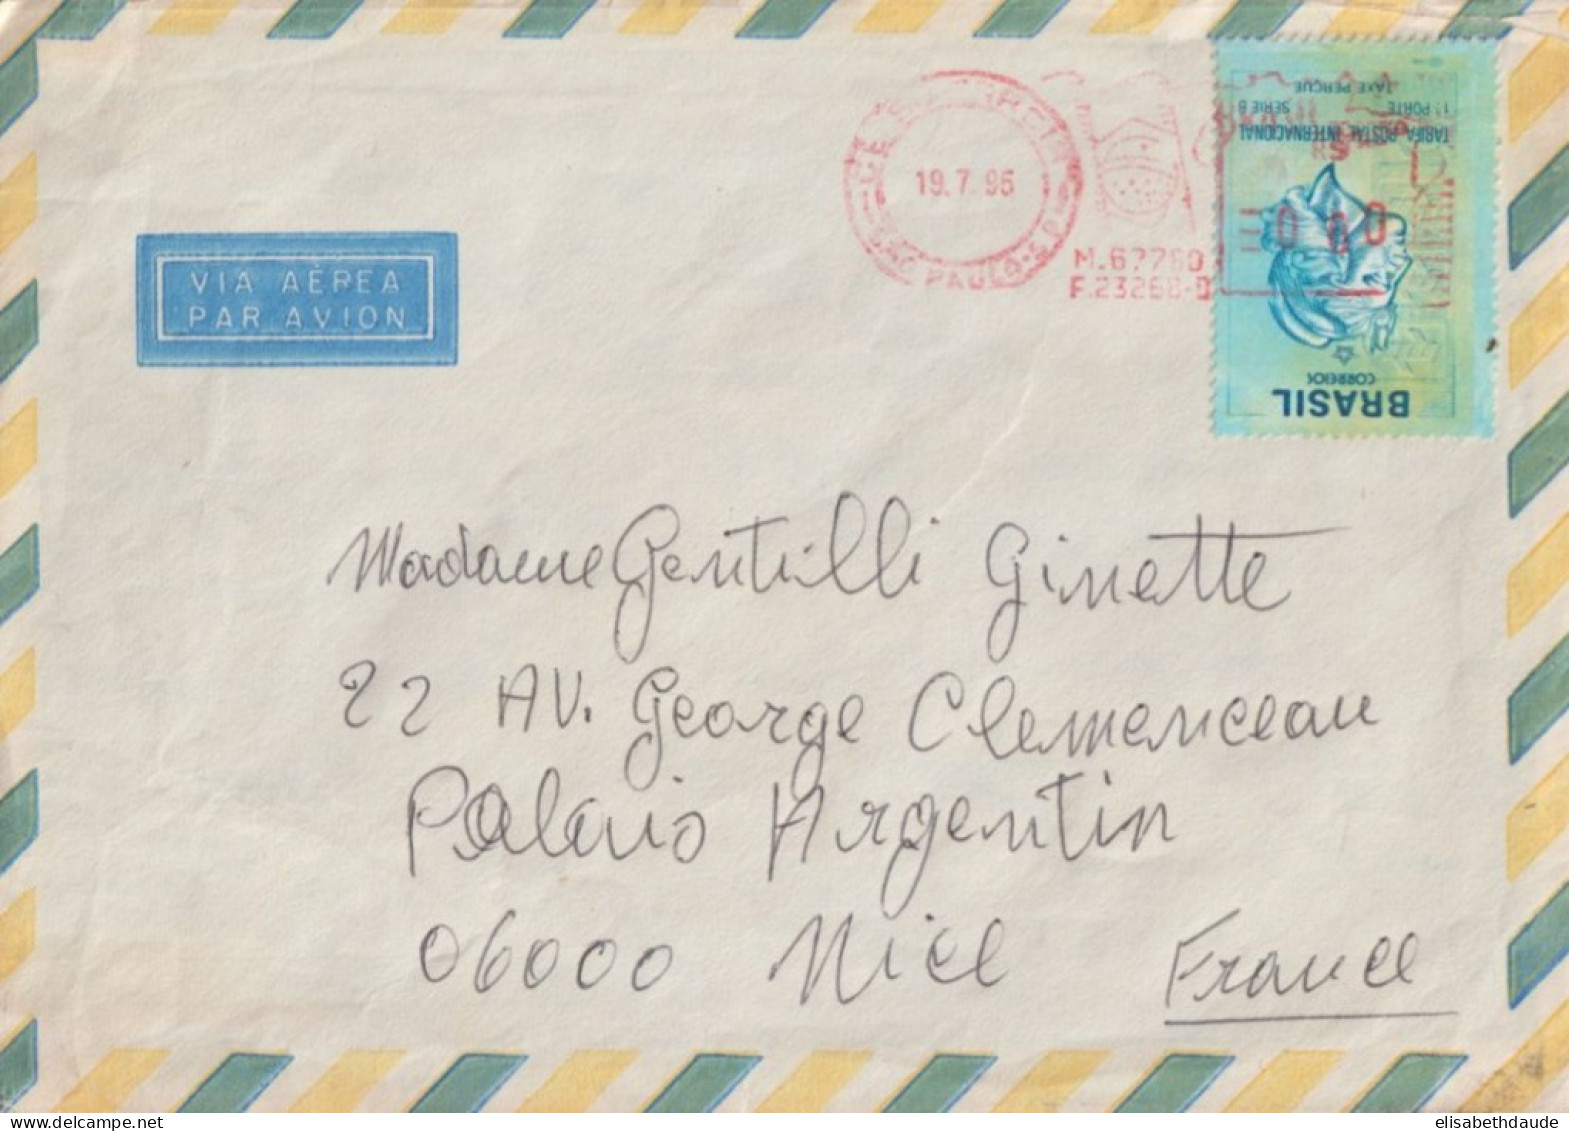 19.7.95
SÃO PAULO-S.P.
M.67760
F.23268-D
TARIFA POSTAL INTERNACIONAL
1º PORTE SÉRIE B
TAXE PERÇUE
CORREIOS
BRASIL
VIA AÉREA
PAR AVION
Madame Gentilli Ginette
22 AV. George Clemenceau
Palais Argentin
06000 Nice France
www.delcampe.net
elisabethdaude